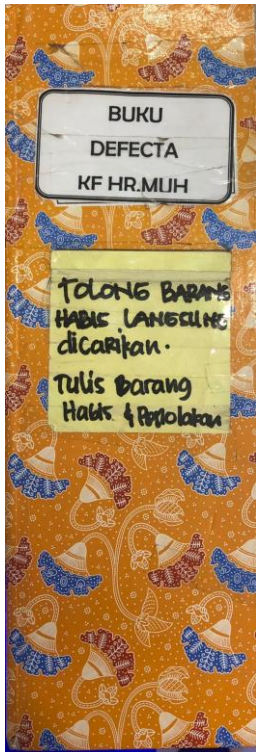 BUKU
DEFECTA
KF HR.MUH
TOLONG BARANG
HABIS LANGSUNG
dicarikan.
Tulis Barang
Habis & Penolakan